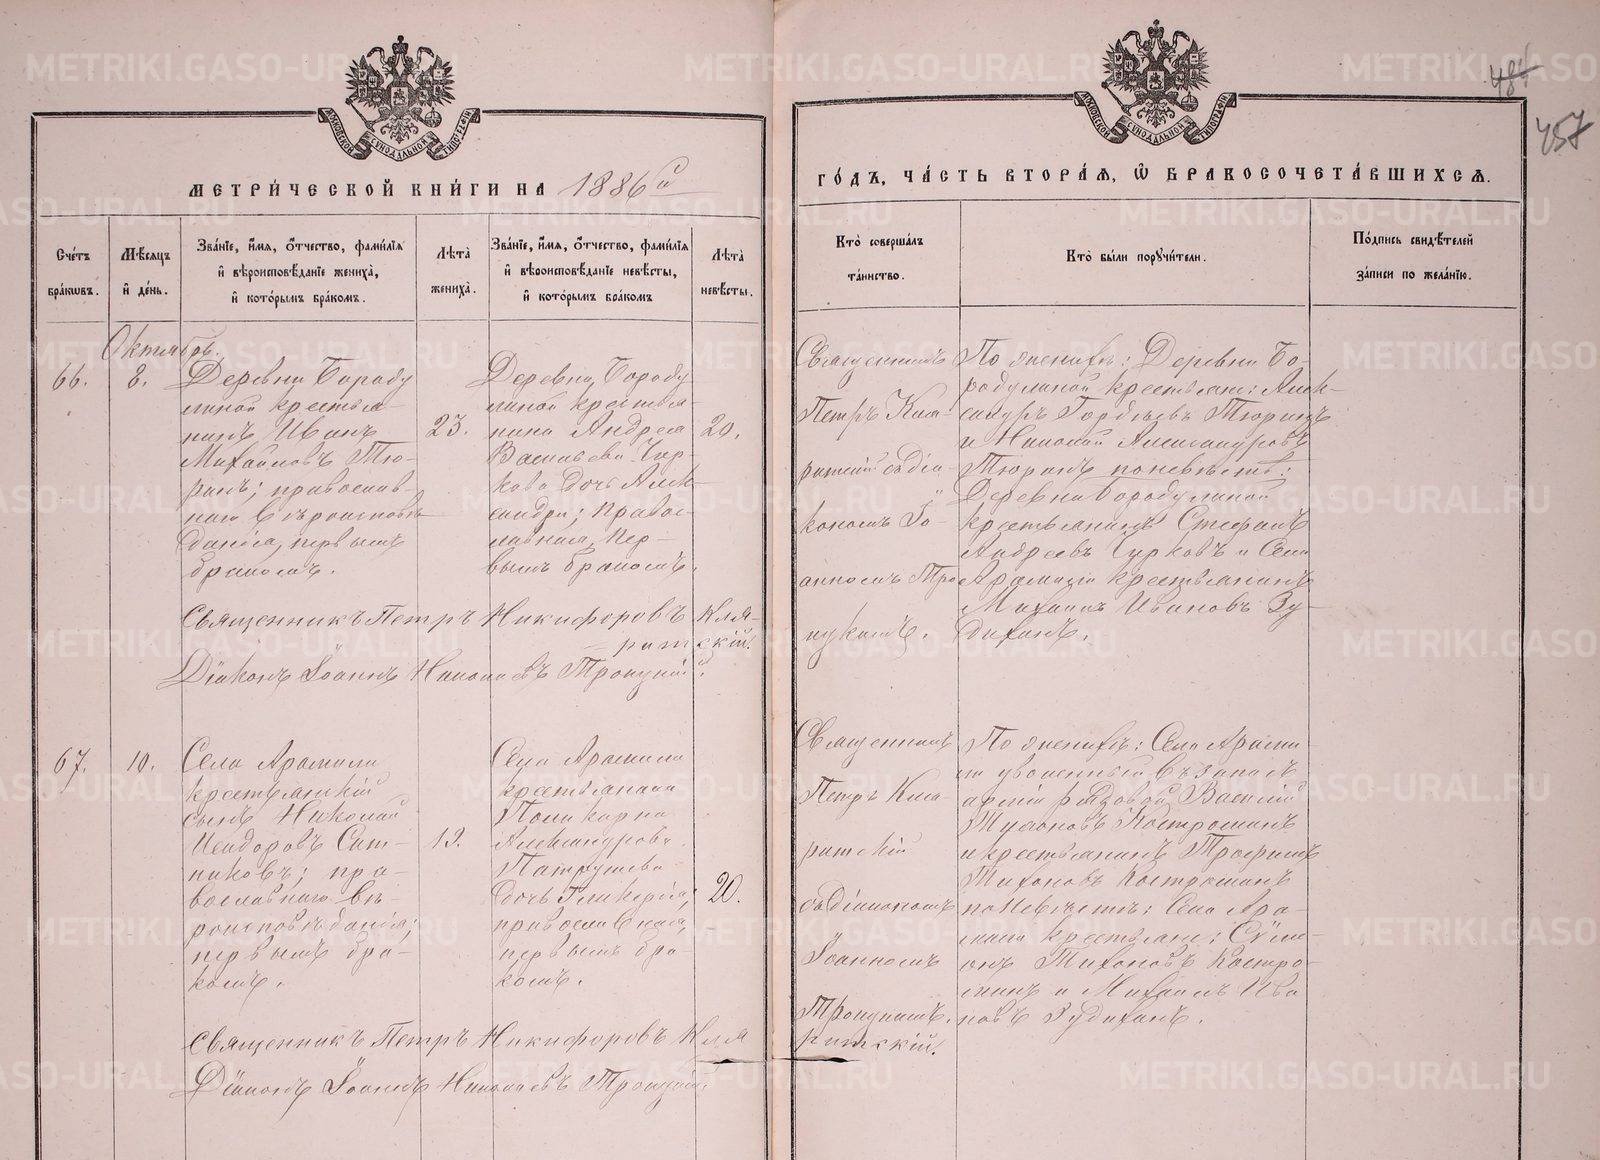 457
МЕТРИ́ЧЕСКОЙ КНИ́ГИ НА 1886й
ГО́ДЪ, ЧА́СТЬ ВТОРА́Я, Ѡ҆ БРАКОСОЧЕТА́ВШИХСЯ.
Сче́тъ бра́кѡвъ.
Мѣ́сяцъ и҆ де́нь.
Зва́нїе, и҆́мя, ѻ҆́тчество, фами́лїя
и҆ вѣроисповѣ́данїе жениха̀,
и҆ кото́рымъ бра́комъ.
Лѣ́та жениха̀.
Зва́нїе, и҆́мя, ѻ҆́тчество, фами́лїя
и҆ вѣроисповѣ́данїе невѣ́сты,
и҆ кото́рымъ бра́комъ
Лѣ́та невѣ́сты.
Кто̀ соверша́лъ
та́инство.
Кто̀ бы́ли порꙋчи́тели.
По́дпись свидѣ́телей
за́писи по жела́нїю.
Октябрь.
66.
8.
Деревни Бороду
линой крестья-
нинъ Иванъ
Михайловъ Тю-
ринъ; православ-
наго вѣроисповѣ
данія, первымъ
бракомъ.
23.
Деревни Бороду
линой крестья-
нина Андрея
Васильева Чур-
кова дочь Алек-
сандра; правос-
лавная, пер-
вымъ бракомъ.
20.
Священникъ
Петръ Кля-
ритскій съ діа-
кономъ Іо-
анномъ Тро
ицкимъ.
По женихѣ: Деревни Бо-
родулиной крестьяне: Алек-
сандръ Гордѣевъ Тюринъ
и Николай Александровъ
Тюринъ по невѣстѣ:
Деревни Бородулиной
крестьянинъ Стефанъ
Андреевъ Чурковъ и Села
Арамили крестьянинъ
Михаилъ Ивановъ Зу-
дихинъ.
Священникъ Петръ Никифоровъ Кля-
ритскій.
Діаконъ Іоаннъ Николаевъ Троицкій.
67.
10.
Села Арамили
крестьянскій
сынъ Николай
Исидоровъ Сит-
никовъ; пра-
вославнаго вѣ-
роисповѣданія;
первымъ бра-
комъ.
19.
Села Арамили
крестьянина
Поликарпа
Александрова
Патрушева
дочь Гликерія;
православная,
первымъ бра-
комъ.
20.
Священникъ
Петръ Кля-
ритскій
съ діакономъ
Іоанномъ
Троицкимъ.
По женихѣ: Села Арами-
ли уволенный въ запасъ
арміи рядовой Василій
Костроминъ
и крестьянинъ Трофимъ
Тихоновъ Костроминъ
по невѣстѣ: Села Ара-
мили крестьяне: Сѷме-
онъ Тихоновъ Костро-
минъ и Михаилъ Ива
новъ Зудихинъ.
Священникъ Петръ Никифоровъ Кля
ритскій.
Діаконъ Іоаннъ Николаевъ Троицкій
METRIKI.GASO-URAL.RU